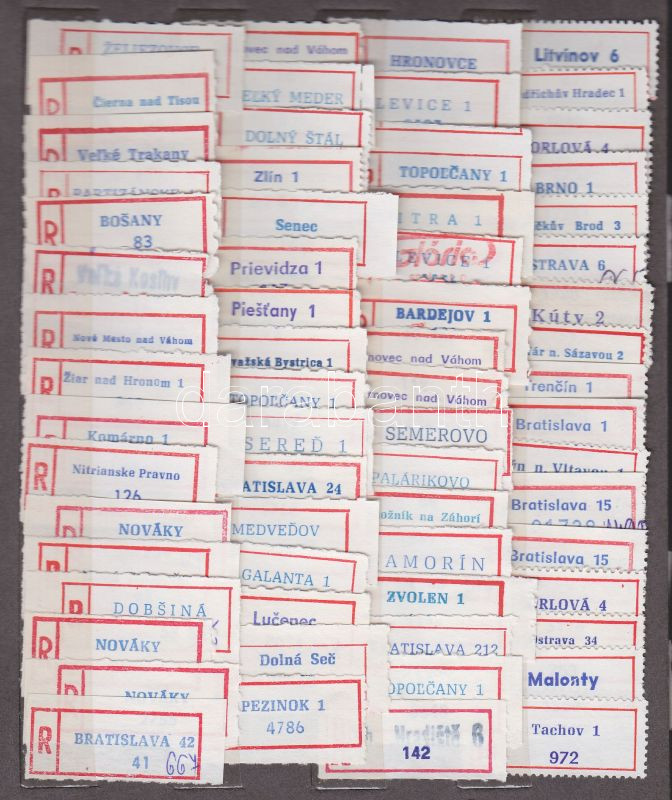 ŽELIEZOVCE
R
Čierna nad Tisou
R
Veľké Trakany
R
PARTIZÁNSKE
R
BOŠANY
83
R
Nové Mesto nad Váhom
R
Žiar nad Hronom 1
R
Komárno 1
R
Nitrianske Pravno
126
NOVÁKY
R
DOBŠINÁ
R
NOVÁKY
R
NOVÁKY
R
BRATISLAVA 42
41
667
ovec nad Váhom
EĽKÝ MEDER
DOLNÝ ŠTÁL
Zlín 1
Senec
Prievidza 1
Piešťany 1
važská Bystrica 1
TOPOĽČANY 1
SEREĎ 1
ATISLAVA 24
MEDVEĎOV
GALANTA 1
Lučenec
Dolná Seč
PEZINOK 1
4786
HRONOVCE
LEVICE 1
TOPOĽČANY 1
ITRA 1
EVICE 1
BARDEJOV 1
novec nad Váhom
novec nad Váhom
SEMEROVO
PALÁRIKOVO
ožník na Záhorí
AMORÍN
ZVOLEN 1
ATISLAVA 212
OPOĽČANY 1
Hradiště 8
142
Litvínov 6
dřichův Hradec 1
ORLOVÁ 4
BRNO 1
íčkův Brod 3
STRAVA 6
Kúty 2
ár n. Sázavou 2
Trenčín 1
Bratislava 1
ýn n. Vltavou 1
Bratislava 15
Bratislava 15
ERLOVÁ 4
Ostrava 34
Malonty
Tachov 1
972
darabanth